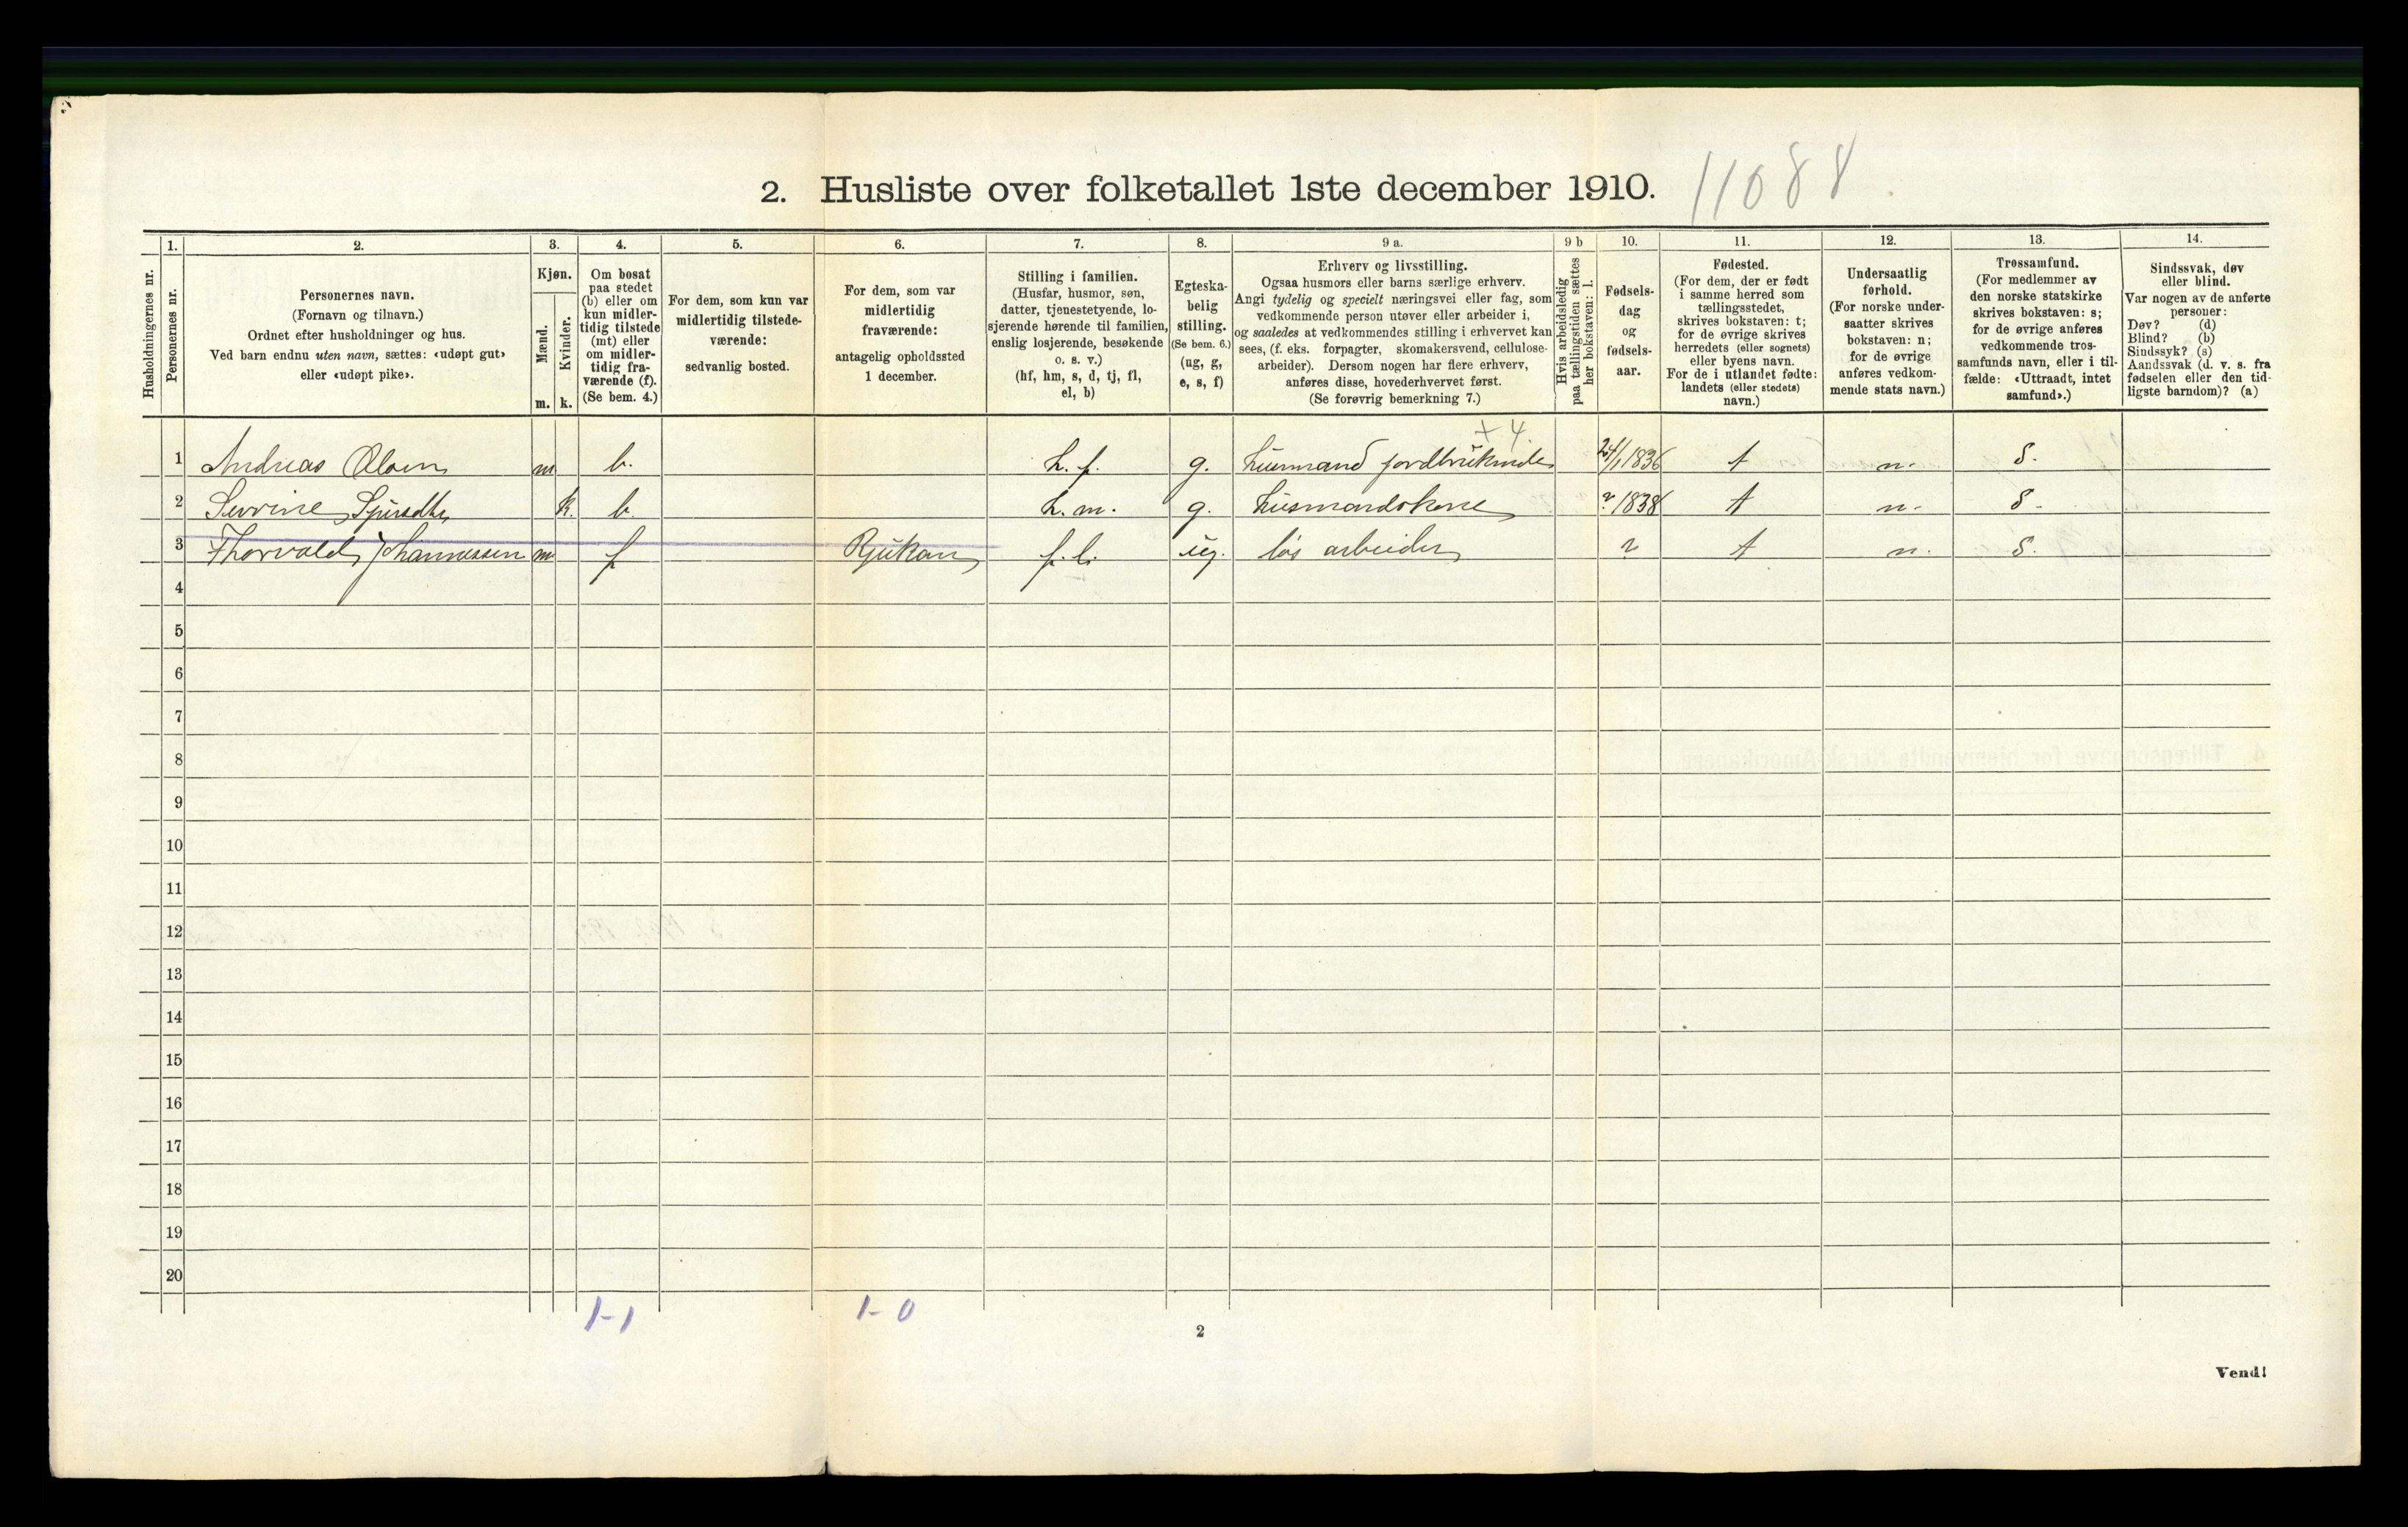 2. Husliste over folketallet 1ste december 1910. 11088
1. 2. 3. 4. 5. 6. 7. 8. 9 a. 9 b 10. 11. 12. 13. 14.
Husholdningernes nr.
Personernes nr.
Personernes navn.
(Fornavn og tilnavn.)
Ordnet efter husholdninger og hus.
Ved barn endnu uten navn, sættes: «udøpt gut»
eller «udøpt pike».
Kjøn.
Mænd.
Kvinder.
m. k.
Om bosat
paa stedet
(b) eller om
kun midler-
tidig tilstede
(mt) eller
om midler-
tidig fra-
værende (f).
(Se bem. 4.)
For dem, som kun var
midlertidig tilstede-
værende:
sedvanlig bosted.
For dem, som var
midlertidig
fraværende:
antagelig opholdssted
1 december.
Stilling i familien.
(Husfar, husmor, søn,
datter, tjenestetyende, lo-
sjerende hørende til familien,
enslig losjerende, besøkende
o. s. v.)
(hf, hm, s, d, tj, fl,
el, b)
Egteska-
belig
stilling.
(Se bem. 6.)
(ug, g,
e, s, f)
Erhverv og livsstilling.
Ogsaa husmors eller barns særlige erhverv.
Angi tydelig og specielt næringsvei eller fag, som
vedkommende person utøver eller arbeider i,
og saaledes at vedkommendes stilling i erhvervet kan
sees, (f. eks. forpagter, skomakersvend, cellulose-
arbeider). Dersom nogen har flere erhverv,
anføres disse, hovederhvervet først.
(Se forøvrig bemerkning 7.)
Hvis arbeidsledig
paa tællingstiden sættes
her bokstaven: l.
Fødsels-
dag
og
fødsels-
aar.
Fødested.
(For dem, der er født
i samme herred som
tællingsstedet,
skrives bokstaven: t;
for de øvrige skrives
herredets (eller sognets)
eller byens navn.
For de i utlandet fødte:
landets (eller stedets)
navn.)
Undersaatlig
forhold.
(For norske under-
saatter skrives
bokstaven: n;
for de øvrige
anføres vedkom-
mende stats navn.)
Trossamfund.
(For medlemmer av
den norske statskirke
skrives bokstaven: s;
for de øvrige anføres
vedkommende tros-
samfunds navn, eller i til-
fælde: «Uttraadt, intet
samfund».)
Sindssvak, døv
eller blind.
Var nogen av de anførte
personer:
Døv? (d)
Blind? (b)
Sindssyk? (s)
Aandssvak (d. v. s. fra
fødselen eller den tid-
ligste barndom)? (a)
+ 4
1 Andreas Olsen m b. h. f. g. husmand jordbrukende 24/1 1836 t n. S.
2 k. b. h. m. g. husmandskone ? 1838 t n. S.
3 Thorvald Johannessen m f Rjukan f. l. ug. løs arbeider ? t n. S.
4
5
6
7
8
9
10
11
12
13
14
15
16
17
18
19
20
1-1 1-0
2
Vend!